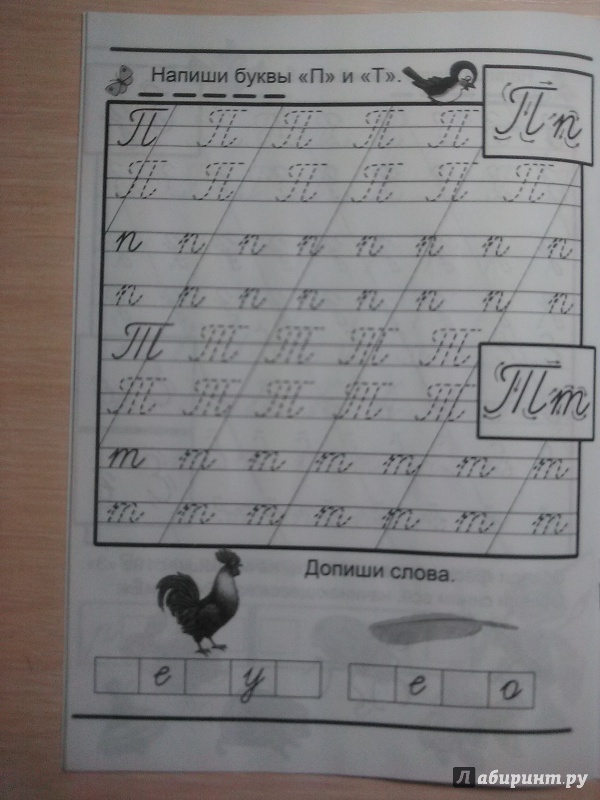 Напиши буквы «П» и «Т».
П П П П П
П п
П П П П П П
п п п п п п п п
п п п п п п п п
Т Т Т Т Т
Т т
Т Т Т Т Т
т т т т т т т
т т т т т т т
Допиши слова.
е у
е о
Лабиринт.ру